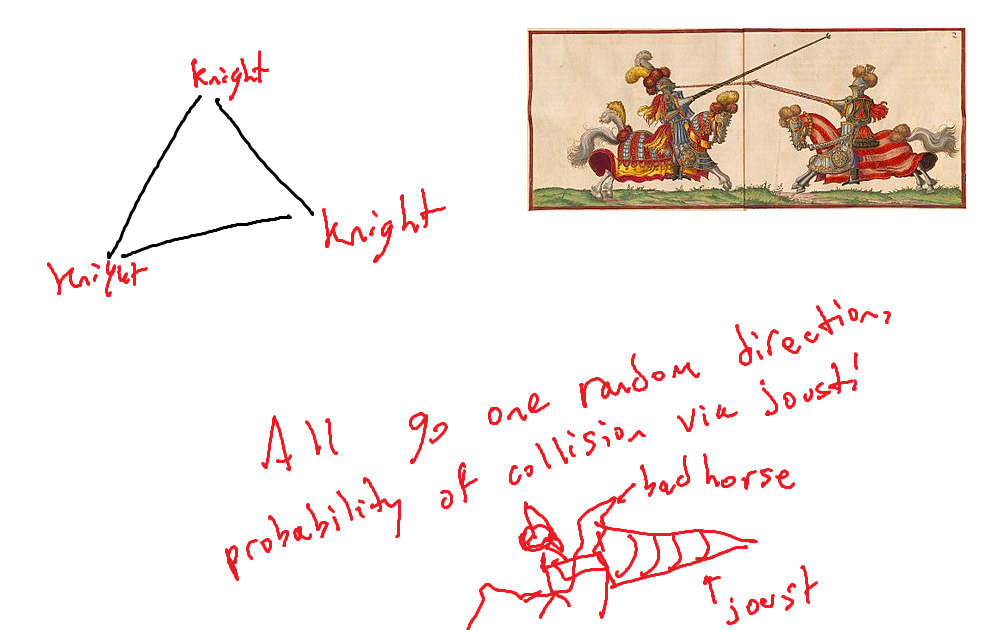 knight
knight
knight
All go one random direction,
probability of collision via joust?
bad horse
joust